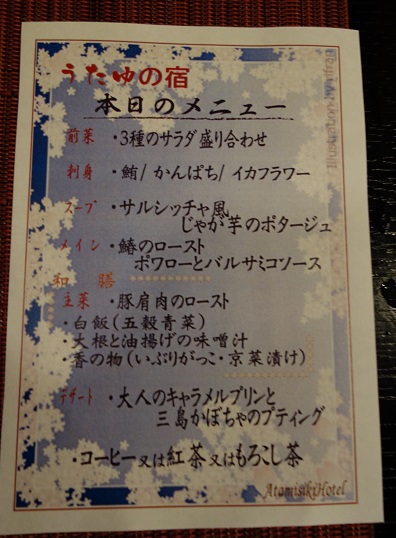 うたゆの宿
本日のメニュー
前菜 ・3種のサラダ盛り合わせ
刺身 ・鮪/かんぱち/イカフラワー
スープ ・サルシッチャ風
じゃが芋のポタージュ
メイン ・鰆のロースト
ポワローとバルサミコソース
和 膳
主菜 ・豚肩肉のロースト
・白飯(五穀青菜)
・大根と油揚げの味噌汁
・香の物(いぶりがっこ・京菜漬け)
デザート ・大人のキャラメルプリンと
三島かぼちゃのプティング
・コーヒー又は紅茶又はもろこし茶
AtamisikiHotel